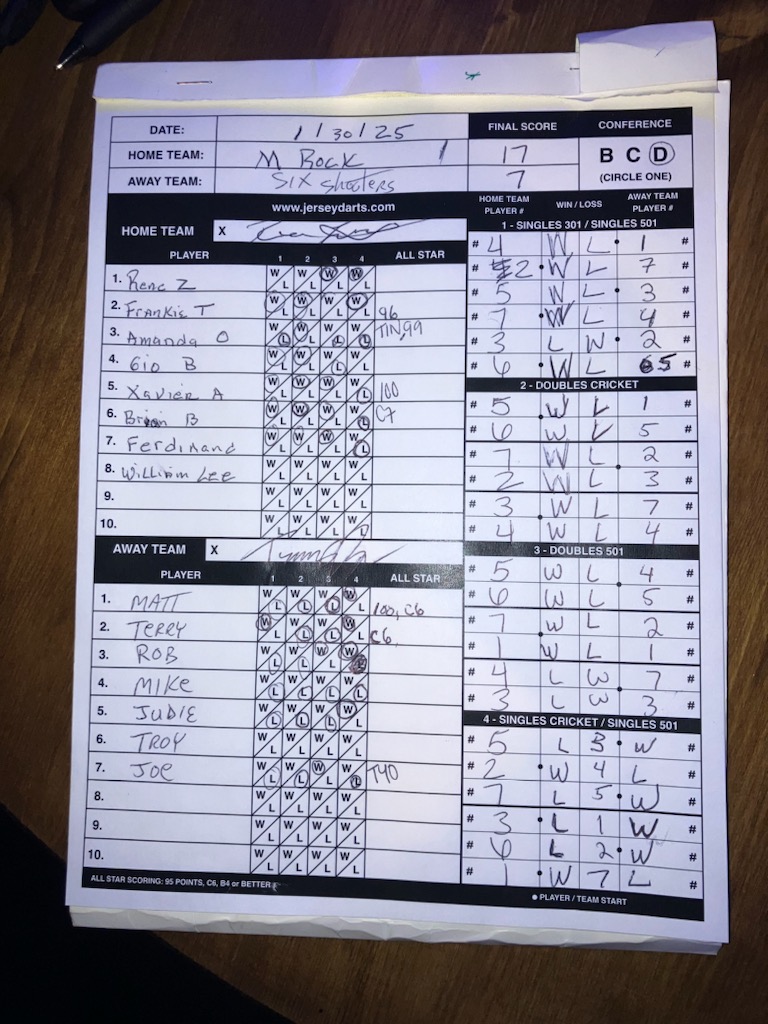 DATE: 1/30/25 FINAL SCORE CONFERENCE
HOME TEAM: M Rock 17 B C D
AWAY TEAM: Six Shooters 7 (CIRCLE ONE)
www.jerseydarts.com HOME TEAM PLAYER # WIN / LOSS AWAY TEAM PLAYER #
HOME TEAM X
1 - SINGLES 301 / SINGLES 501
PLAYER 1 2 3 4 ALL STAR
1. Rene Z
2. Frankie T 96
3. Amanda O T11, 99
4. Gio B
5. Xavier A 100
6. Brian B C7
7. Ferdinand
8. William Lee
9.
10.
# 4 W L 1 #
# 2 W L 7 #
# 5 W L 3 #
# 7 W L 4 #
# 3 L W 2 #
# 6 W L 5 #
2 - DOUBLES CRICKET
# 5 W L 1 #
# 6 W L 5 #
# 7 W L 2 #
# 2 W L 3 #
# 3 W L 7 #
# 4 W L 4 #
AWAY TEAM X
PLAYER 1 2 3 4 ALL STAR
1. MATT 100, C6
2. TERRY C6
3. ROB
4. MIKE
5. JUDIE
6. TROY
7. JOE T40
8.
9.
10.
3 - DOUBLES 501
# 5 W L 4 #
# 6 W L 5 #
# 7 W L 2 #
# 1 W L 1 #
# 4 L W 7 #
# 3 L W 3 #
4 - SINGLES CRICKET / SINGLES 501
# 5 L 3 W #
# 2 W 4 L #
# 7 L 5 W #
# 3 L 1 W #
# 6 L 2 W #
# 1 W 7 L #
ALL STAR SCORING: 95 POINTS, C6, B4 or BETTER
• PLAYER / TEAM START